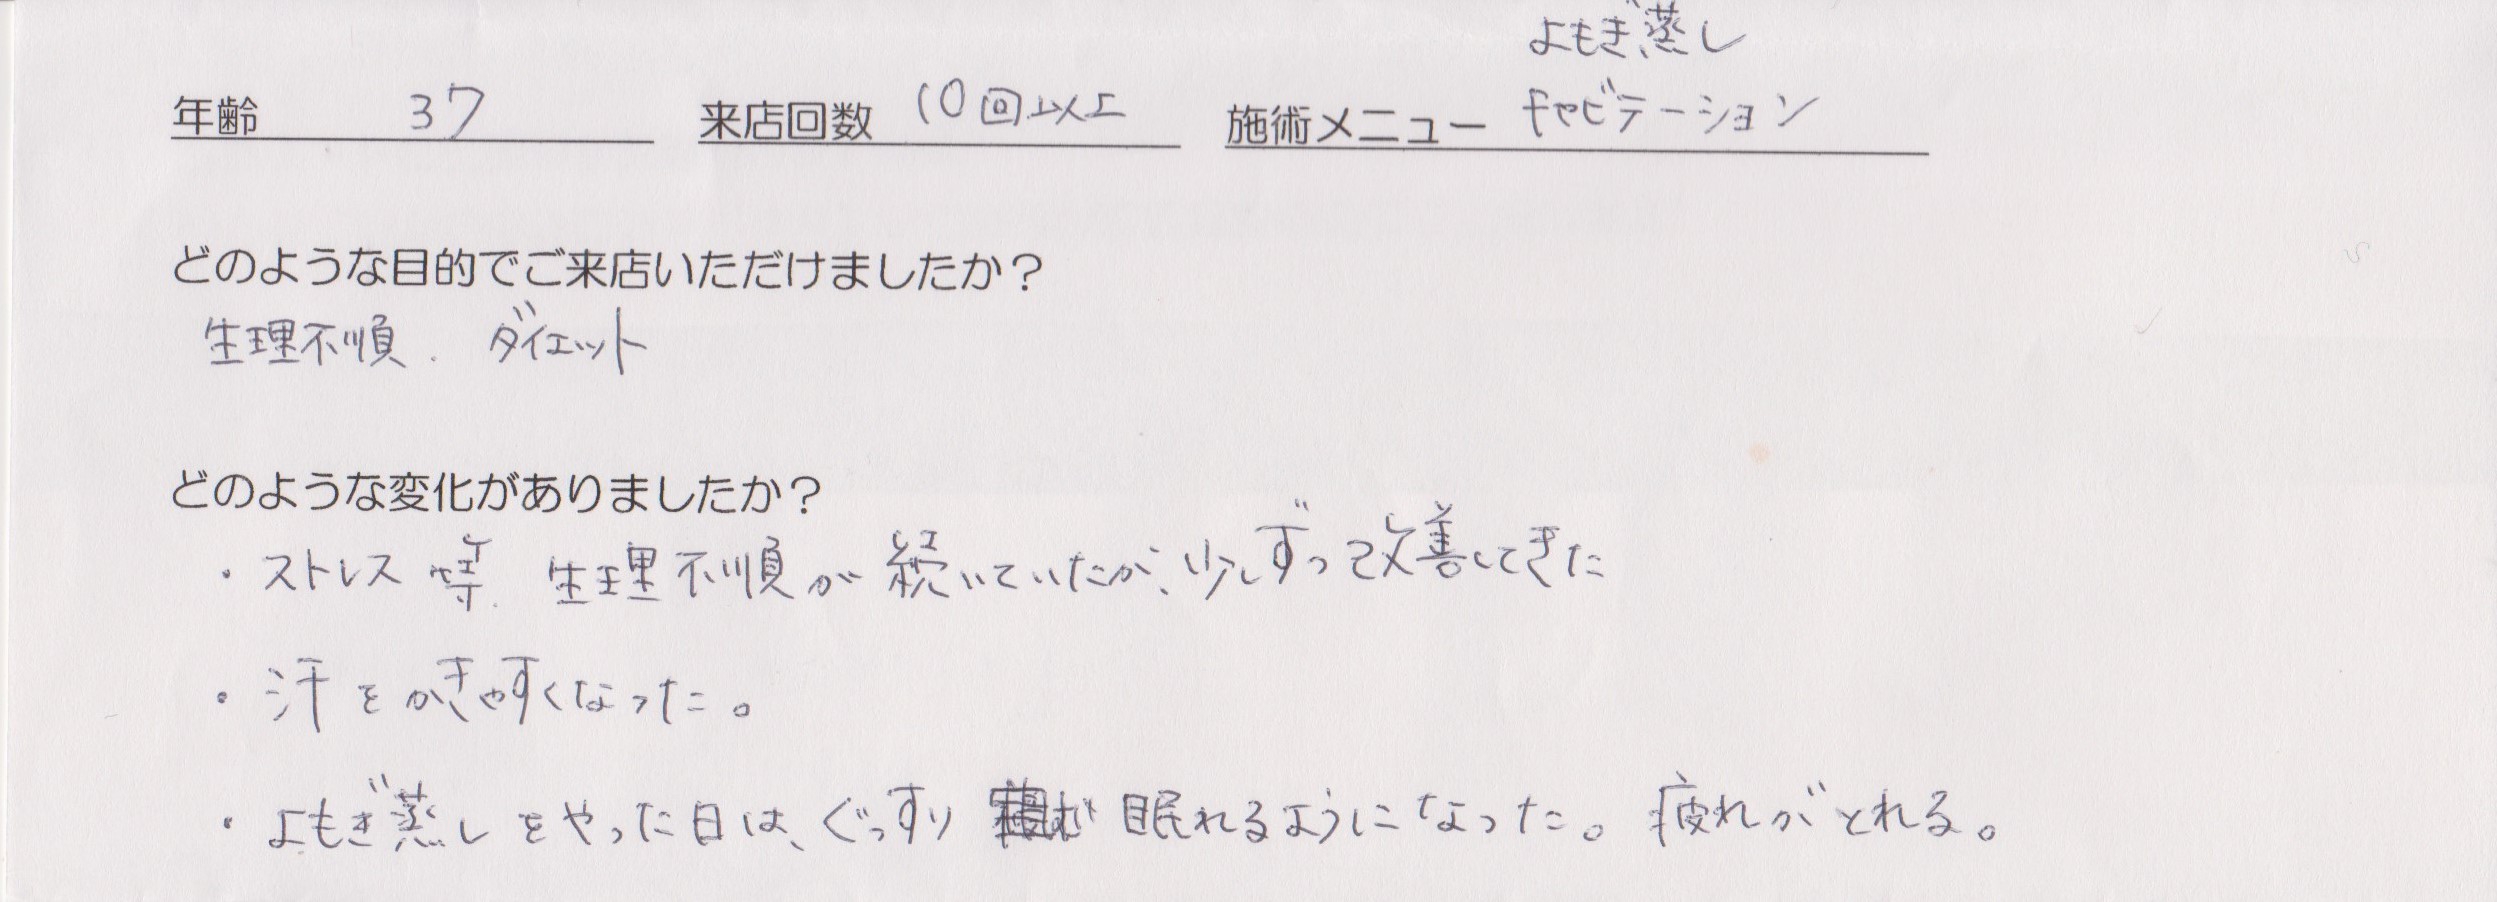 よもぎ蒸し
年齢 37 来店回数 10回以上 施術メニュー キャビテーション
どのような目的でご来店いただけましたか？
生理不順. ダイエット
どのような変化がありましたか？
・ストレス等. 生理不順が続いていたが、少しずつ改善してきた
・汗をかきやすくなった。
・よもぎ蒸しをやった日は、ぐっすり 眠れるようになった。疲れがとれる。